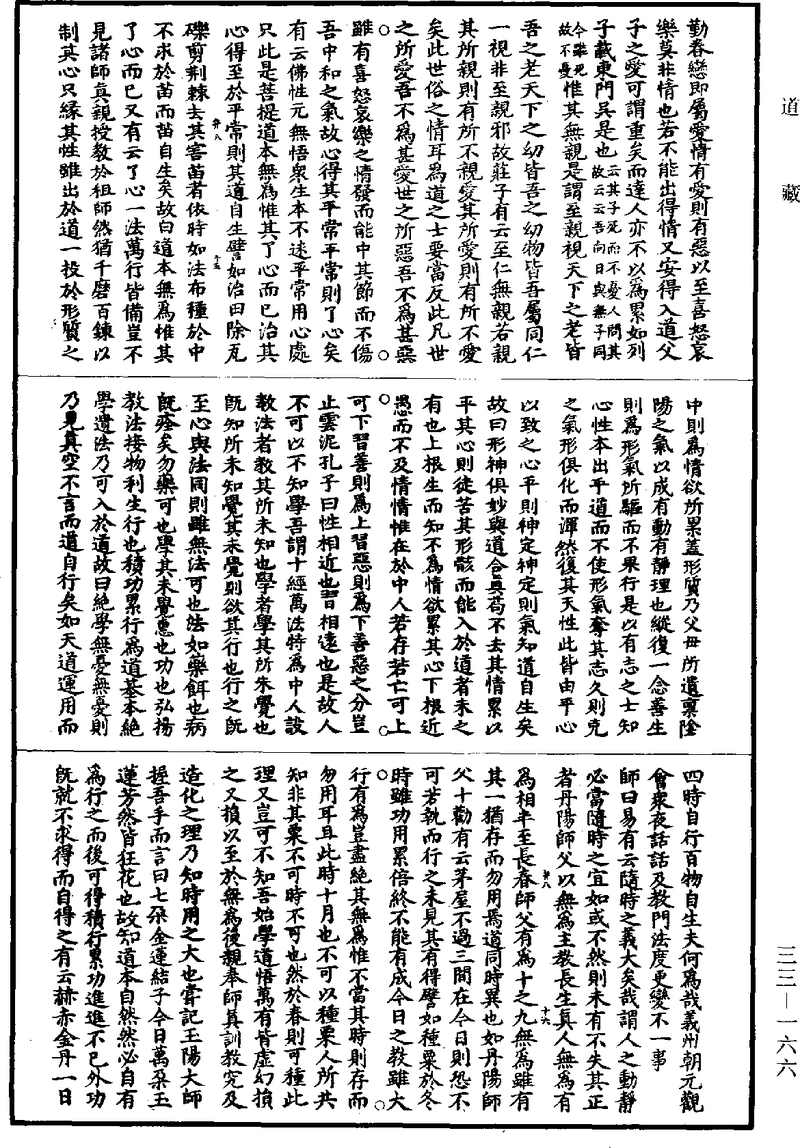 道藏
勤眷戀即屬愛情有愛則有惡以至喜怒哀
樂莫非情也若不能出得情又安得入道父
子之愛可謂重矣而達人亦不以為累如列
子載東門吳是也云其子死而不憂人問其故云云吾向日與無子同今雖死故不憂惟其無親是謂至親視天下之老皆
吾之老天下之幼皆吾之幼物皆吾屬同仁
一視非至親邪故莊子有云至仁無親若親
其所親則有所不親愛其所愛則有所不愛
矣此世俗之情耳為道之士要當反此凡世
之所愛吾不為甚愛世之所惡吾不為甚惡
雖有喜怒哀樂之情發而能中其節而不傷
吾中和之氣故心得其平常平常則了心矣
有云佛性元無悟衆生本不迷平常用心處
只此是菩提道本無為惟其了心而已治其
心得至於平常則其道自生譬如治田除瓦
礫剪荆棘去其害苗者依時如法布種於中
不求於苗而苗自生矣故曰道本無為惟其
了心而已又有云了心一法萬行皆備豈不
見諸師真親授教於祖師然猶千磨百鍊以
制其心只緣其性雖出於道一投於形質之
中則為情欲所累蓋形質乃父母所遺稟陰
陽之氣以成有動有靜理也縱復一念善生
則為形氣所驅而不果行是以有志之士知
心性本出乎道而不使形氣奪其志久則克
之氣形俱化而渾然復其天性此皆由乎心
以致之心平則神定神定則氣知道自生矣
故曰形神俱妙與道合真苟不去其情累以
平其心則徒苦其形骸而能入於道者未之
有也上根生而知不為情欲累其心下根近
愚而不及情情惟在於中人若存若亡可上
可下習善則為上習惡則為下善惡之分豈
止雲泥孔子曰性相近也習相遠也是故人
不可以不知學吾謂十經萬法特為中人設
教法者教其所未知也學者學其所未覺也
既知所未知覺其未覺則欲其行也行之既
至心與法同則雖無法可也法如藥餌也病
既痊矣勿藥可也學其未覺惠也功也弘揚
教法接物利生行也積功累行為道基本絕
學遺法乃可入於道故曰絕學無憂無憂則
乃見真空不言而道自行矣如天道運用而
四時自行百物自生夫何為哉義州朝元觀
會衆夜話話及教門法度更變不一事
師曰易有云隨時之義大矣哉謂人之動靜
必當隨時之宜如或不然則未有不失其正
者丹陽師父以無為主教長生真人無為有
為相半至長春師父有為十之九無為雖有
其一猶存而勿用焉道同時異也如丹陽師
父十勸有云茅屋不過三間在今日則恐不
可若執而行之未見其有得譬如種粟於冬
時雖功用累倍終不能有成今日之教雖大
行有為豈盡絕其無為惟不當其時則存而
勿用耳且此時十月也不可以種粟人所共
知非其粟不可時不可也然於春則可種此
理又豈可不知吾始學道悟萬有皆虛幻損
之又損以至於無為後親奉師真訓教究及
造化之理乃知時用之大也嘗記玉陽大師
握吾手而言曰七朶金蓮結子今日萬朶玉
蓮芳然皆狂花也故知道本自然然必自有
為行之而後可得積行累功進進不已外功
既就不求得而自得之有云赫赤金丹一日
三三一一六六